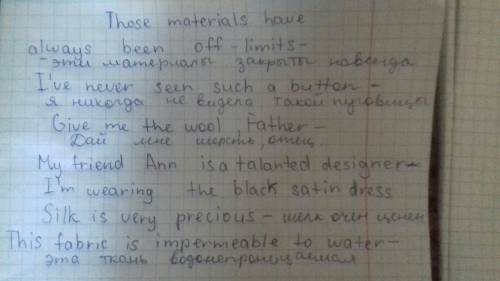 Those materials have
always been off-limits-
- эти материалы закрыты навсегда
I've never seen such a button -
я никогда не видела такой пуговицы
Give me the wool, Father -
Дай мне шерсть, отец.
My friend Ann is a talanted designer-
I'm wearing the black satin dress
Silk is very precious - шелк очен ценен
This fabric is impermeable to water-
эта ткань водонепроницаемая